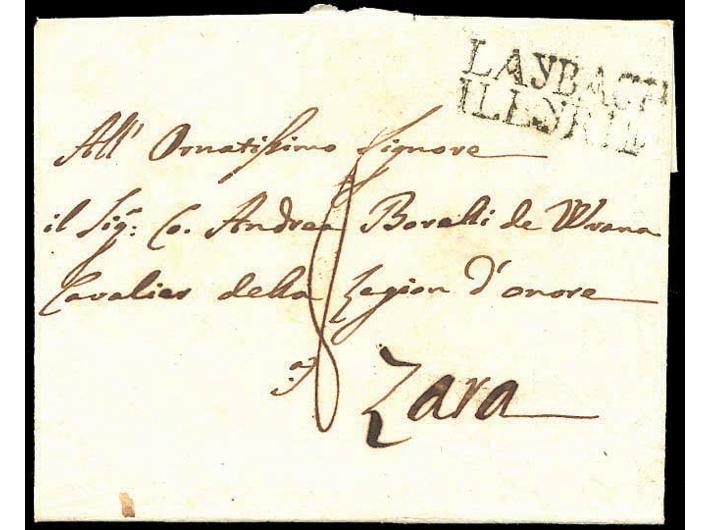 LAYBACH
ILLYRIE
All' Ornatissimo Signore
il Sigr: Co. Andrea Borelli de Wrana
Cavalier della Legion d'onore
a
8
Zara